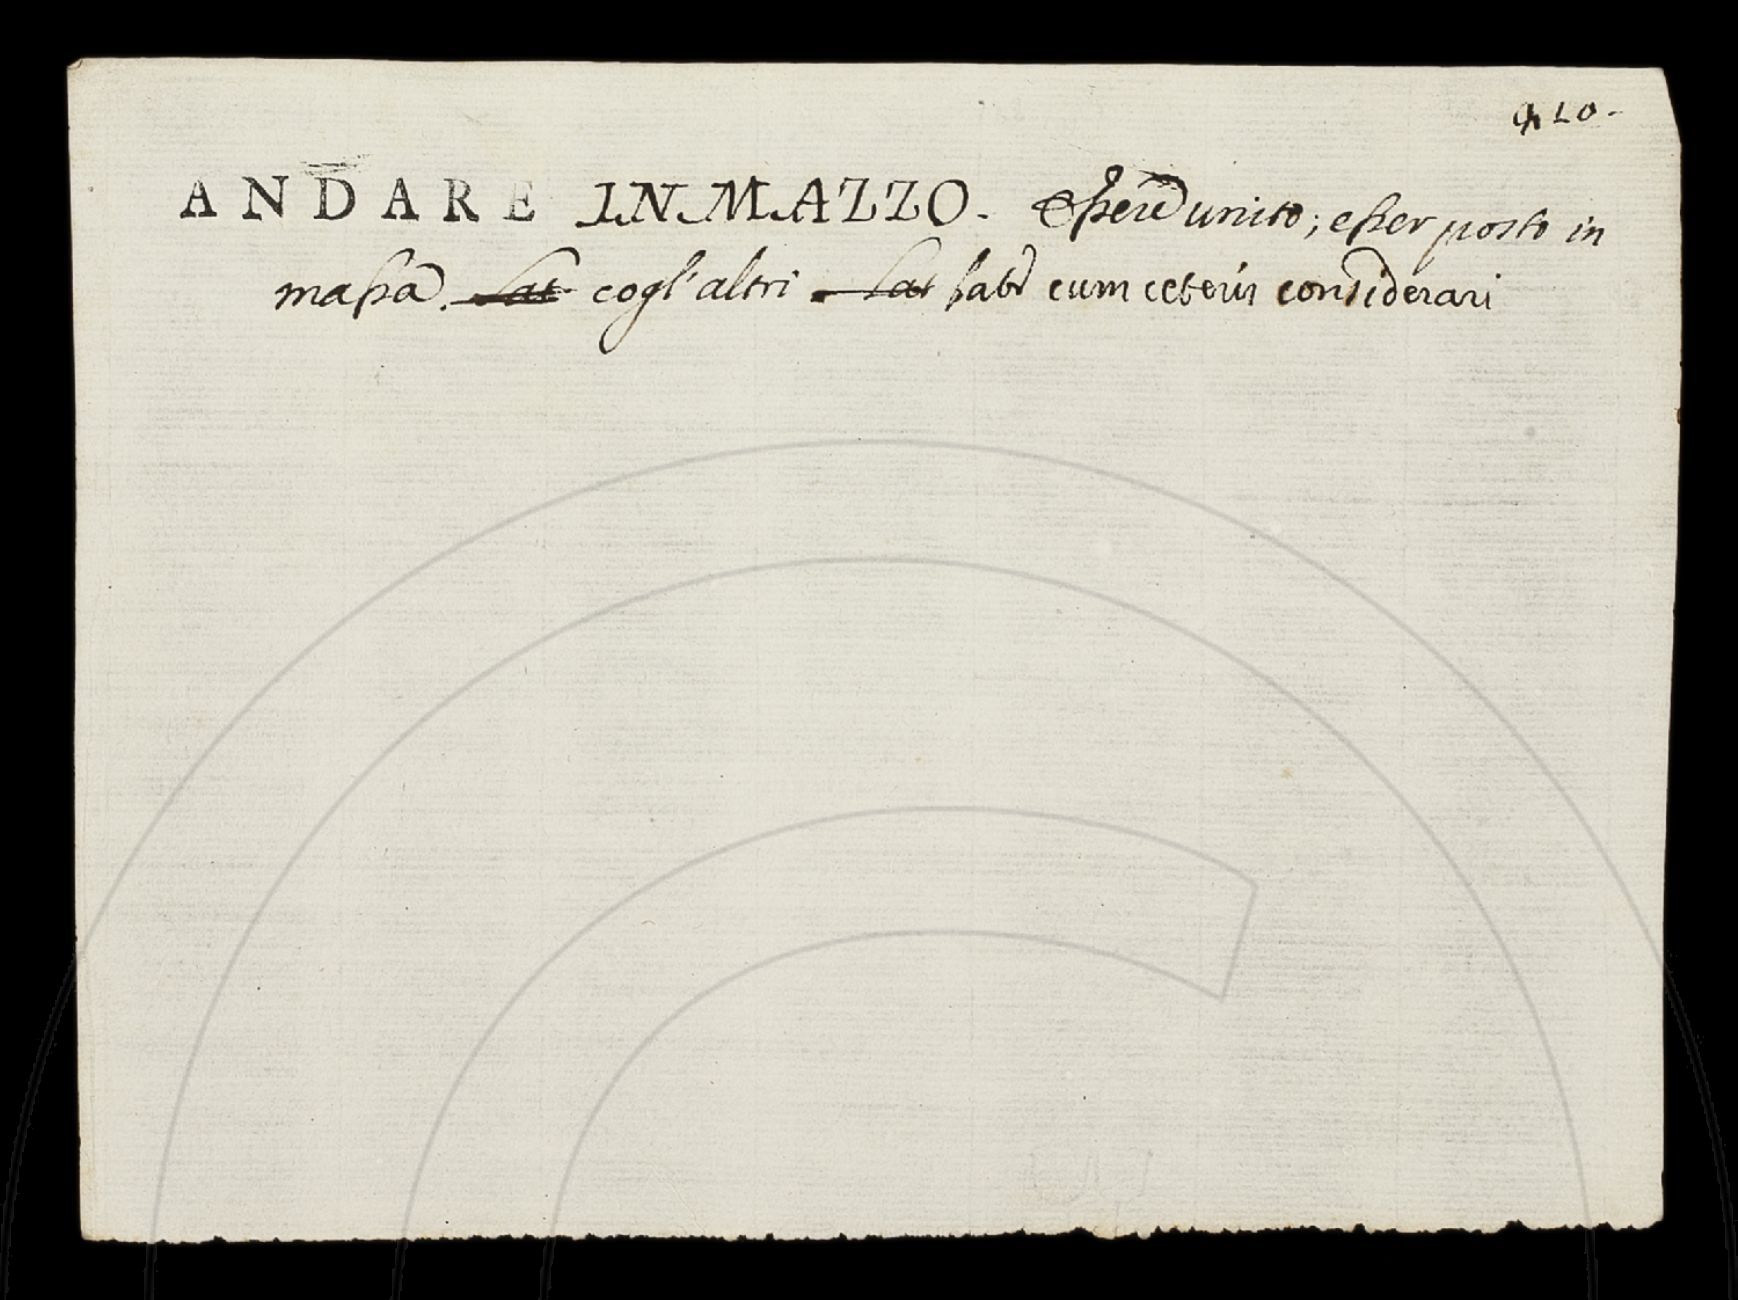 ANDARE IN MAZZO. Essere unito; esser posto in
massa. Lat cogl'altri Lat cum ceteris considerari